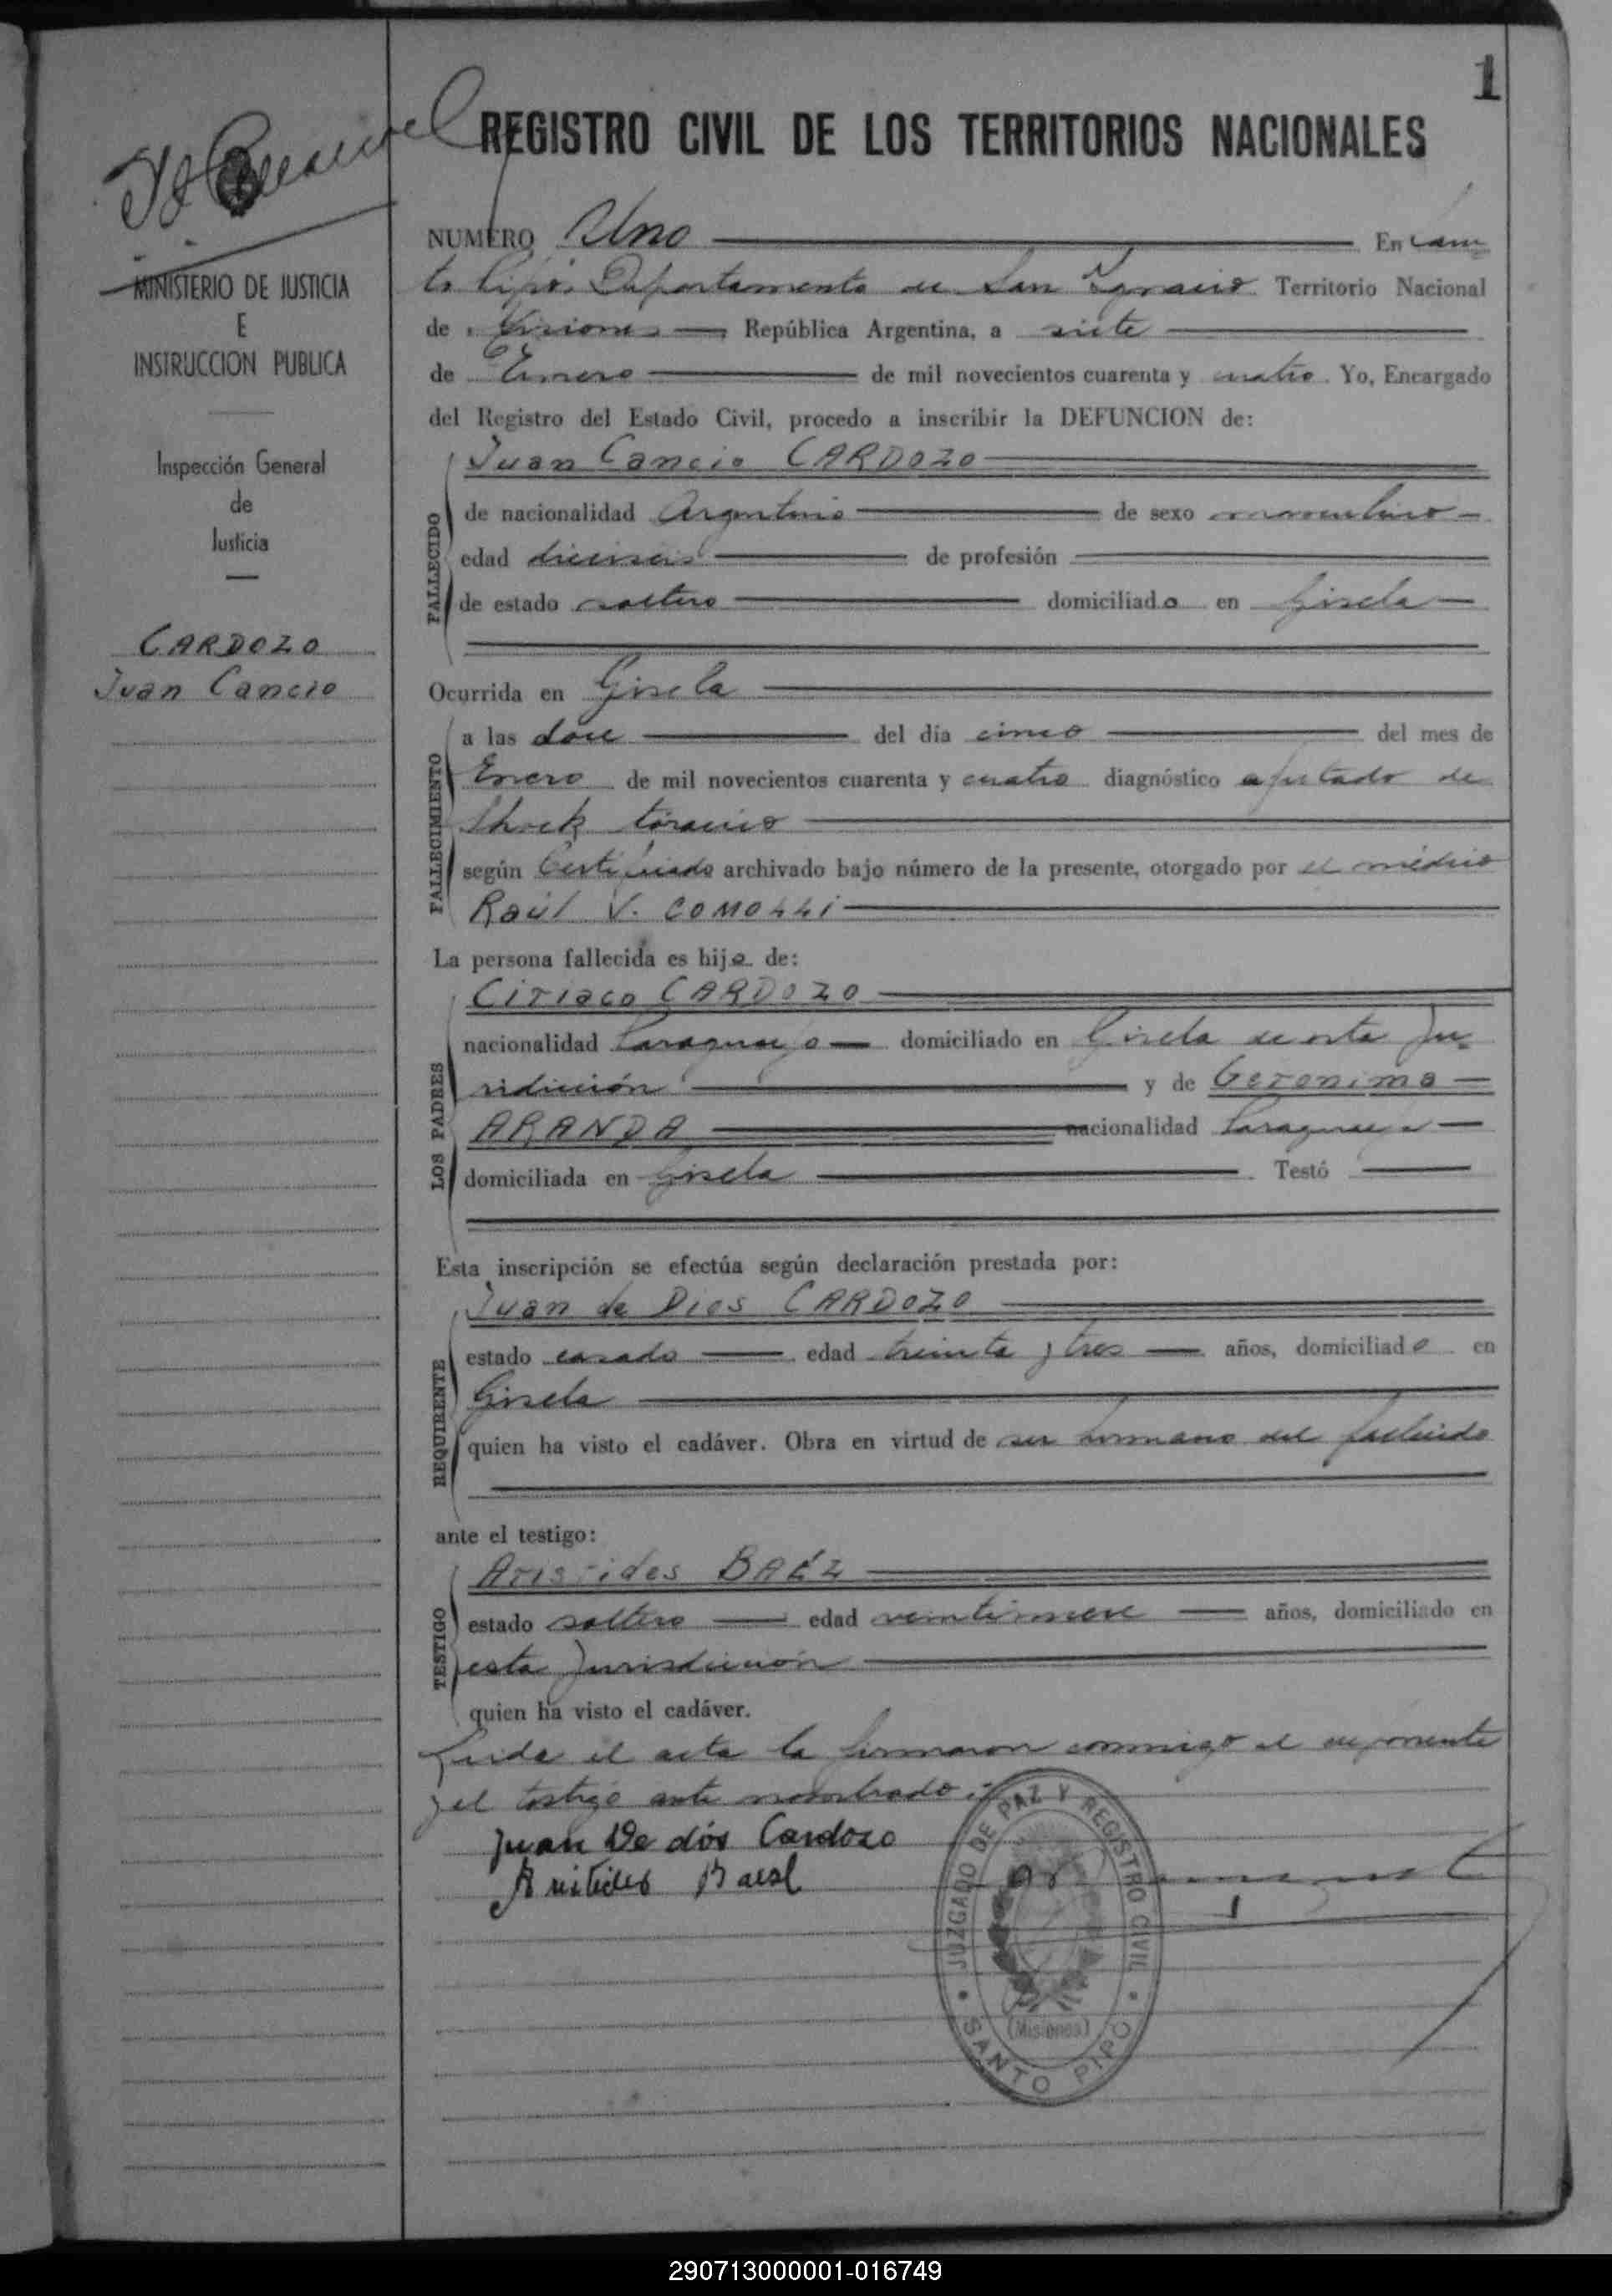 1
REGISTRO CIVIL DE LOS TERRITORIOS NACIONALES
MINISTERIO DE JUSTICIA
E
INSTRUCCION PUBLICA
Inspección General
de
Justicia
CARDOZO
Juan Cancio
NUMERO Uno En San
to Pipó, Departamento de San Ignacio Territorio Nacional
de Misiones República Argentina, a siete
de Enero de mil novecientos cuarenta y cuatro. Yo, Encargado
del Registro del Estado Civil, procedo a inscribir la DEFUNCION de:
FALLECIDO
Juan Cancio CARDOZO
de nacionalidad Argentino de sexo masculino
edad dieciseis de profesión
de estado soltero domiciliado en Gisela
Ocurrida en Gisela
FALLECIMIENTO
a las doce del día cinco del mes de
Enero de mil novecientos cuarenta y cuatro diagnóstico afectado de
Shock
según Certificado archivado bajo número de la presente, otorgado por el médico
Raúl V. COMOLLI
La persona fallecida es hijo de:
LOS PADRES
Ciriaco CARDOZO
nacionalidad Paraguayo domiciliado en Gisela de esta Ju-
ridicción y de Geronima
ARANDA nacionalidad Paraguaya
domiciliada en Gisela Testó
Esta inscripción se efectúa según declaración prestada por:
REQUIRENTE
Juan de Dios CARDOZO
estado casado edad treinta y tres años, domiciliado en
Gisela
quien ha visto el cadáver. Obra en virtud de ser hermano del fallecido
ante el testigo:
TESTIGO
Aristides BAÉZ
estado soltero edad veintinueve años, domiciliado en
esta Jurisdicción
quien ha visto el cadáver.
Leida el acta la firmaron conmigo el exponente
y el testigo ante nombrado
Juan De dios Cardozo
JUZGADO DE PAZ Y REGISTRO CIVIL
(Misiones)
SANTO PIPÓ
290713000001-016749